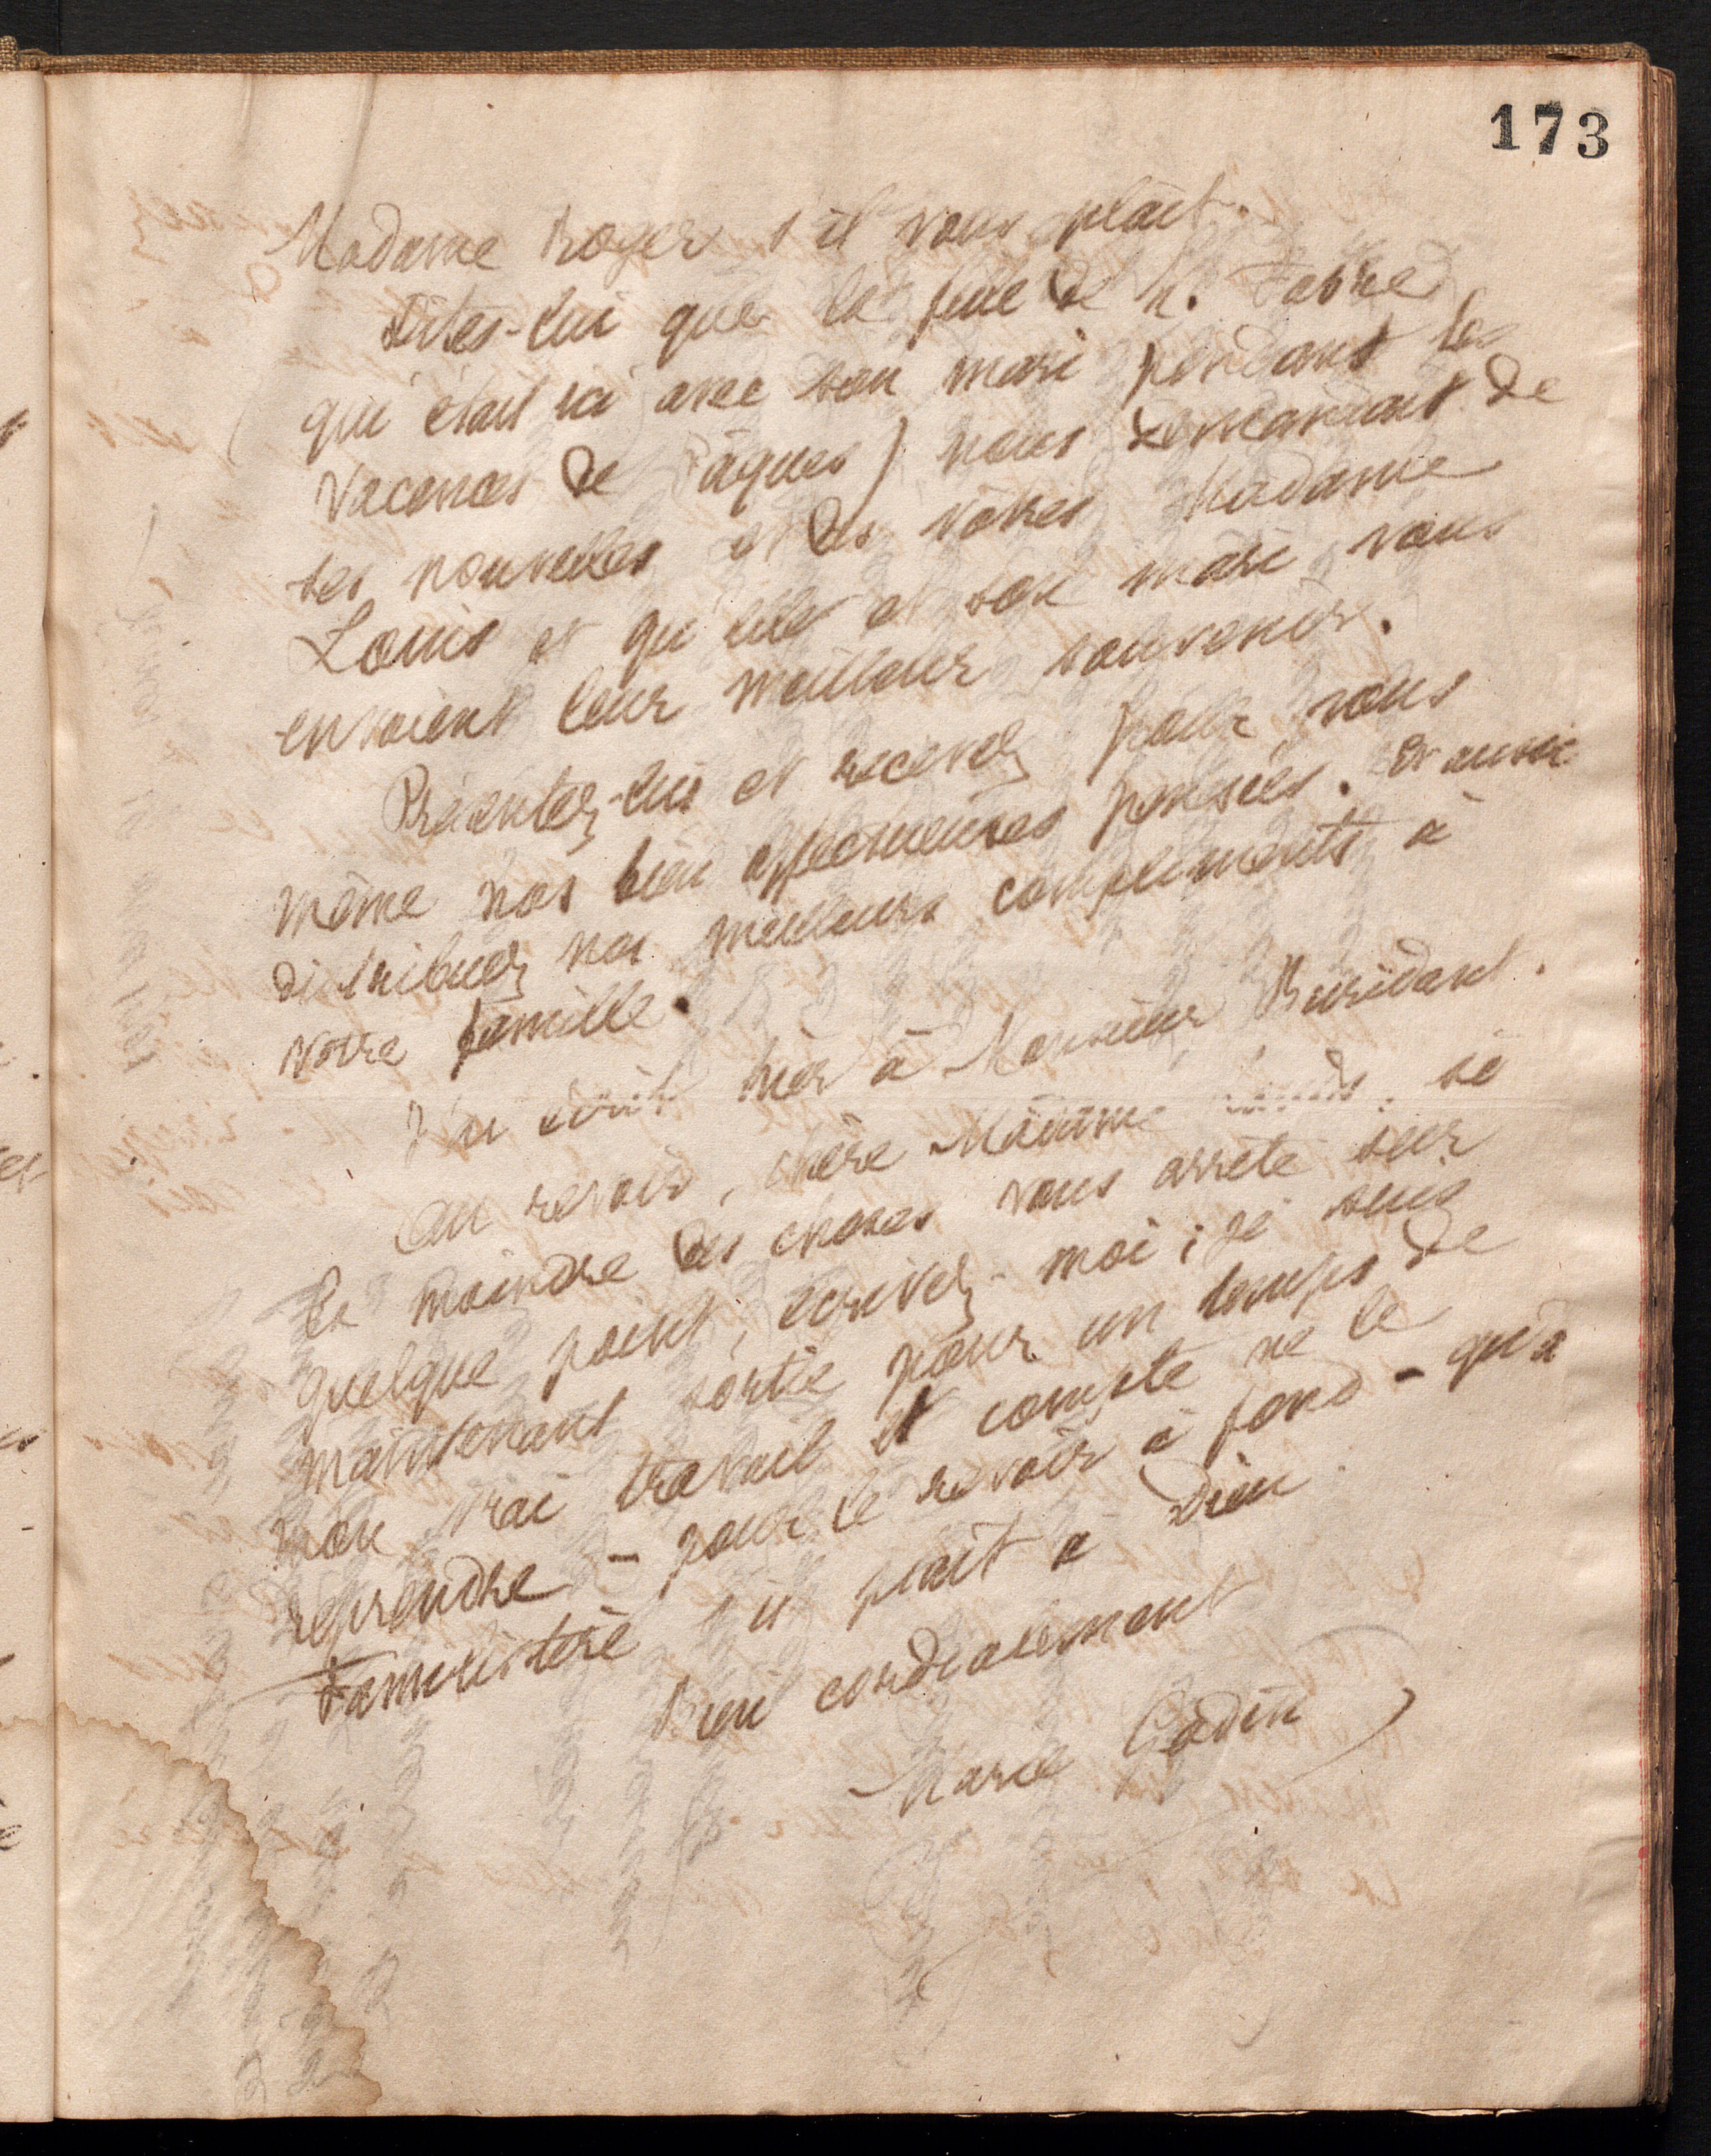 173
Madame Roger s'il vous plait.
Dites-lui que la fille de M. Fabre
(qui était ici avec son mari pendant les
vacances de Pâques) nous demandant de
ses nouvelles et des vôtres Madame
Louis et qu'elle et son mari vous
envoient leur meilleur souvenir.
Présentez-lui et recevez pour vous
même nos bien affectueuses pensées. Et aussi
distribuez nos meilleurs compliments à
votre famille.
J'ai écrit hier à Monsieur Buridant.
Au revoir, chère Madame Louis, si
la moindre des choses vous arrête sur
quelque point, écrivez-moi ; je suis
maintenant sortie pour un temps de
mon vrai travail et compte ne le
reprendre - pour le revoir à fond - qu'à
Familistère s'il plait à Dieu
Bien cordialement
Marie Godin